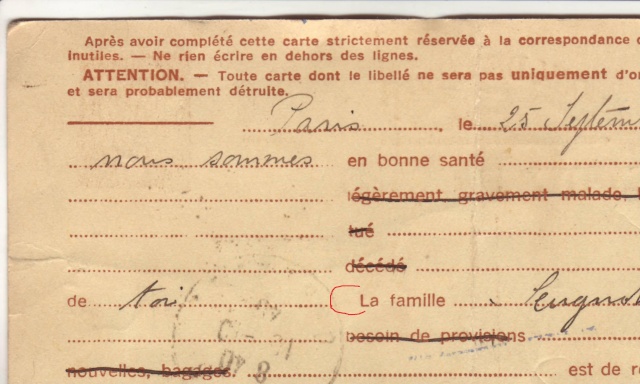 Après avoir complété cette carte strictement réservée à la correspondance
inutiles. — Ne rien écrire en dehors des lignes.
ATTENTION. — Toute carte dont le libellé ne sera pas uniquement d'or
et sera probablement détruite.
Paris, le 25 Septem
nous sommes en bonne santé
légèrement gravement malade,
tué
décédé
de toi La famille
besoin de provisions
nouvelles, bagages. est de re